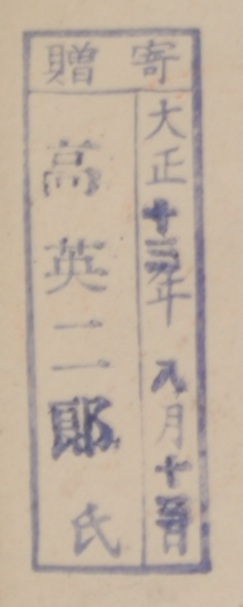 寄贈
大正十三年八月十五日
高英二郎氏